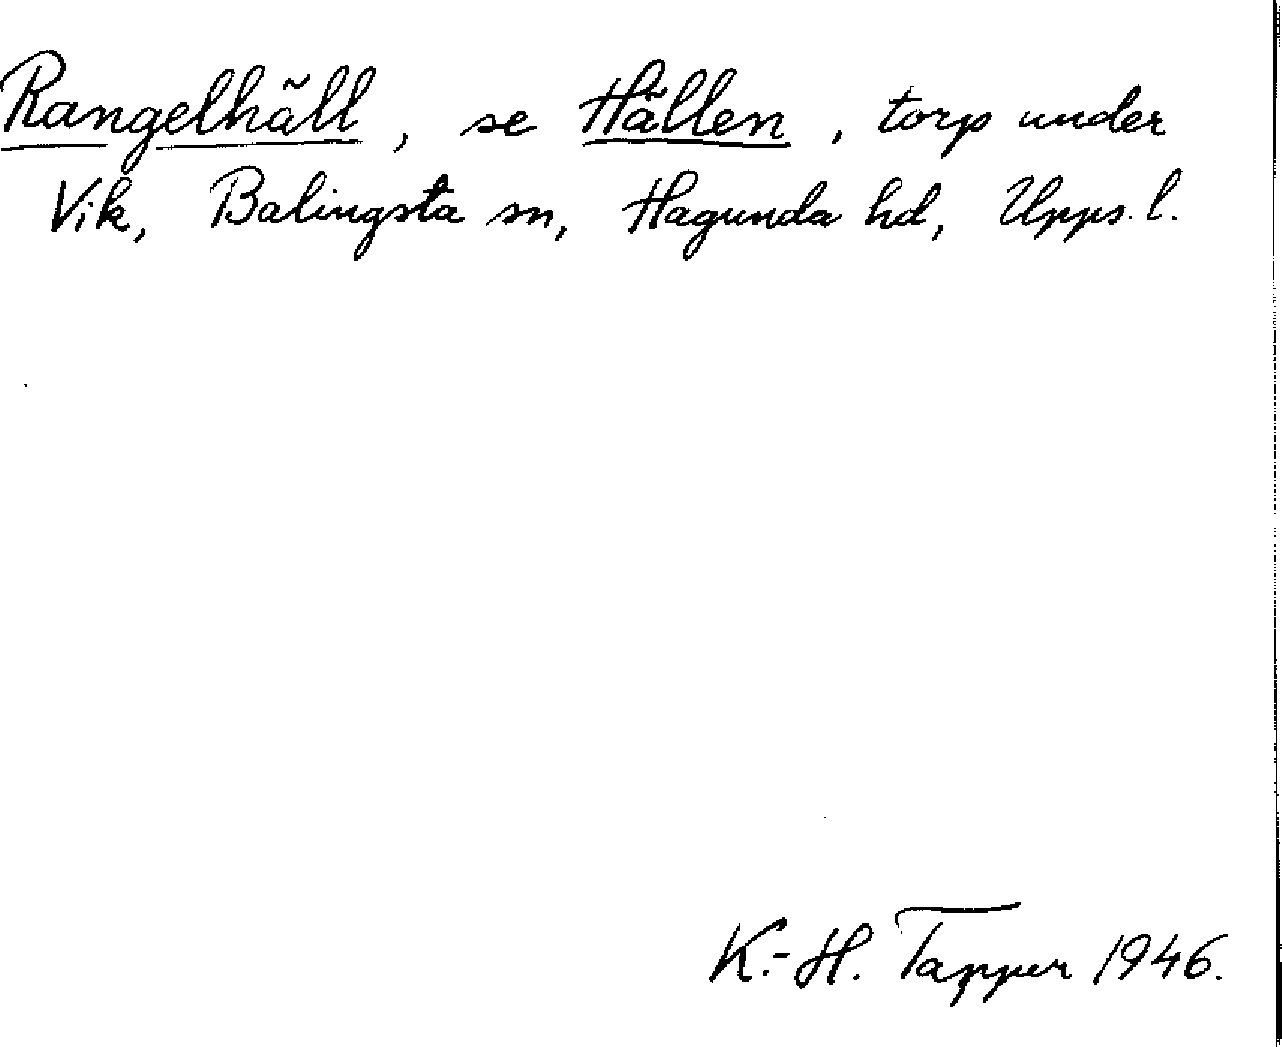 Rangelhäll, se Hällen, torp under
Vik, Balingsta sn, Hagunda hd, Upps. l.
K.-H. Tapper 1946.